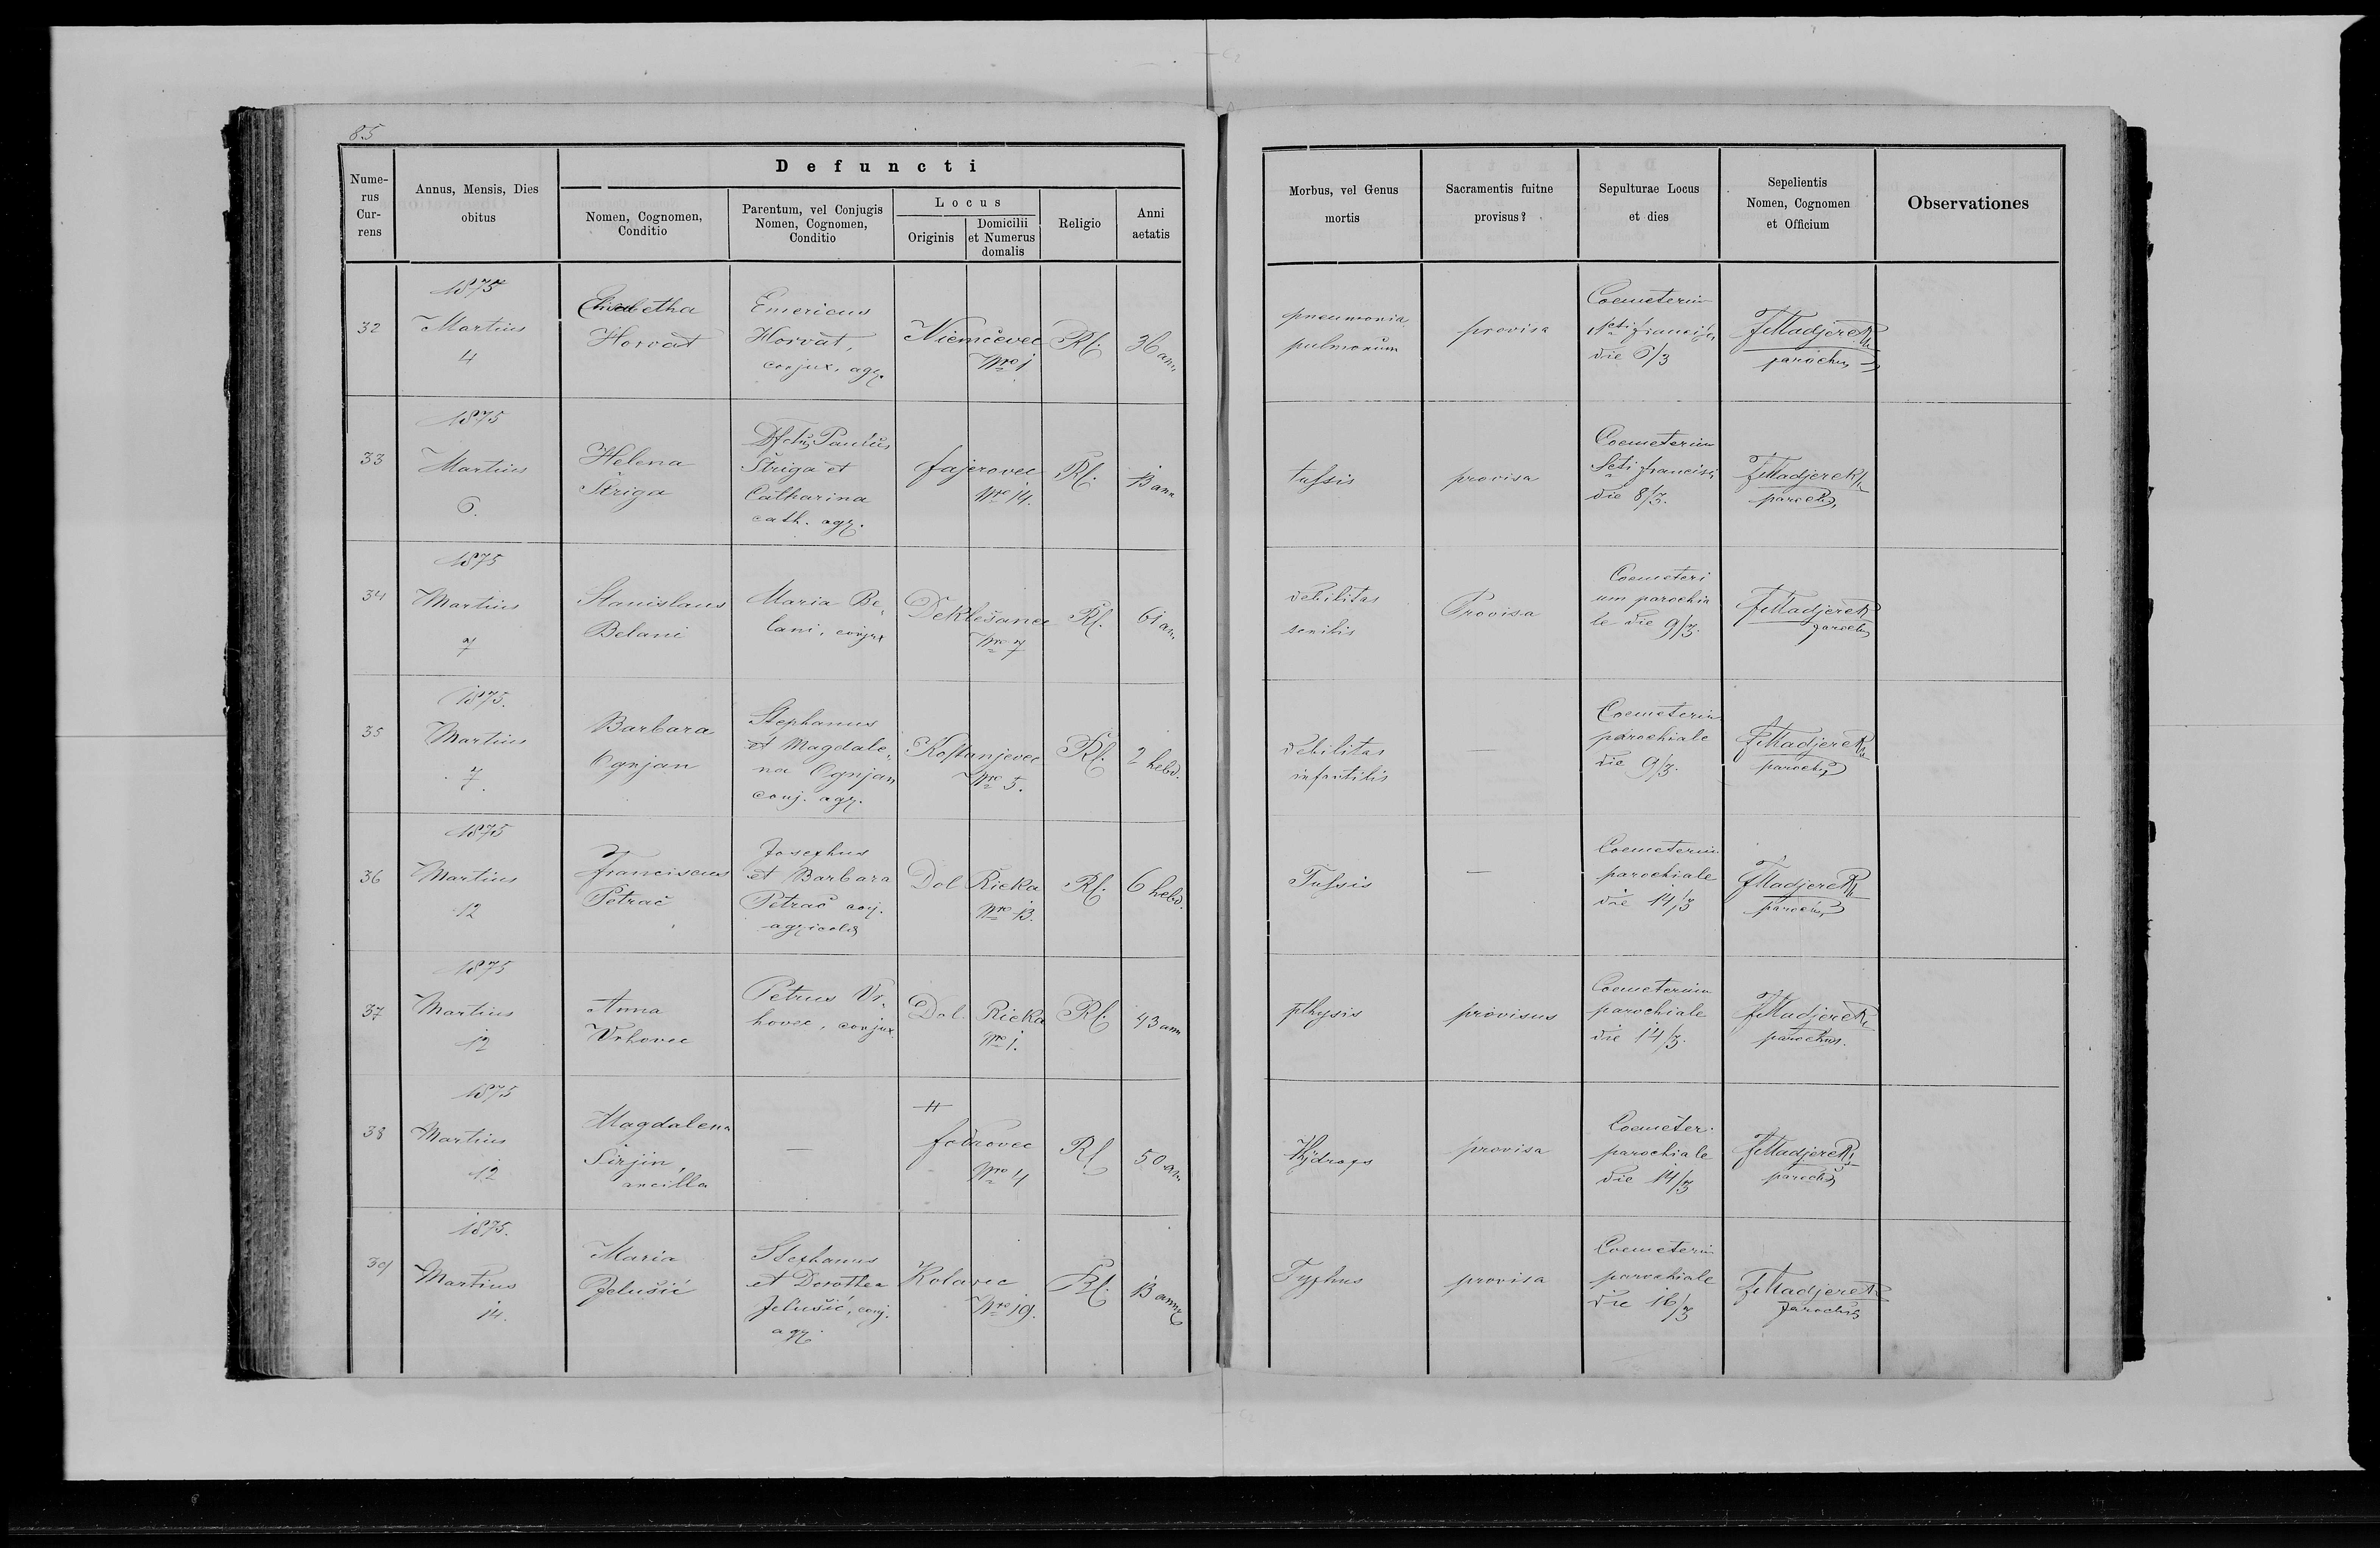 85
Defuncti
Nume-
rus
Cur-
rens
Annus, Mensis, Dies
obitus
Nomen, Cognomen,
Conditio
Parentum, vel Conjugis
Nomen, Cognomen,
Conditio
Locus
Originis
Domicilii
et Numerus
domalis
Religio
Anni
aetatis
Morbus, vel Genus
mortis
Sacramentis fuitne
provisus?
Sepulturae Locus
et dies
Sepelientis
Nomen, Cognomen
et Officium
Observationes
32
1875
Martius
4
Elisabetha
Horvat
Emericus
Horvat,
conjux, agr.
Niemčevec
Nro 1
Rk.
36 ann
pneumonia
pulmonum
provisa
Coemeterium
Scti Francisci
die 6/3
F Madjerek
parochus
33
1875
Martius
6.
Helena
Striga
Dfctus Paulus
Striga et
Catharina
cath. agr.
fajerovec
Nro 14.
Rk.
13 ann
tussis
provisa
Coemeterium
Scti Francisci
die 8/3.
F Madjerek
paroch
34
1875
Martius
7
Stanislaus
Belani
Maria Be-
lani, conjux
Deklešanec
Nro 7
Rk.
61 an.
debilitas
senilis
Provisa
Coemeteri
um parochia
le die 9/3.
F Madjerek
paroch
35
1875.
Martius
7.
Barbara
Ognjan
Stephanus
et Magdale-
na Ognjan
conj. agr.
Kostanjevec
Nro 5.
Rk.
2 hebd.
debilitas
infantilis
—
Coemeterium
parochiale
die 9/3.
F Madjerek
paroch
36
1875
Martius
12
Franciscus
Petrač
Josephus
et Barbara
Petrač conj.
agricolæ
Dol Rieka
Nro 13.
Rk.
6 hebd.
Tussis
—
Coemeterium
parochiale
die 14/3
F Madjerek
parochus
37
1875
Martius
12
Anna
Vrhovec
Petrus Vr-
hovec, conjux
Dol. Rieka
Nro 1.
Rk.
43 ann
pthysis
provisus
Coemeterium
parochiale
die 14/3.
F Madjerek
parochus.
38
1875
Martius
12
Magdalena
Sirjin,
ancilla
—
fodrovec
Nro 4
Rk
50 an.
Hydrops
provisa
Coemeter.
parochiale
die 14/3
F Madjerek
paroch
39
1875.
Martius
14.
Maria
Jelušić
Stephanus
et Dorothea
Jelušić, conj.
agr.
Kolarec
Nro 19.
Rk.
13 ann
Typhus
provisa
Coemeterium
parochiale
die 16/3
F Madjerek
parochus